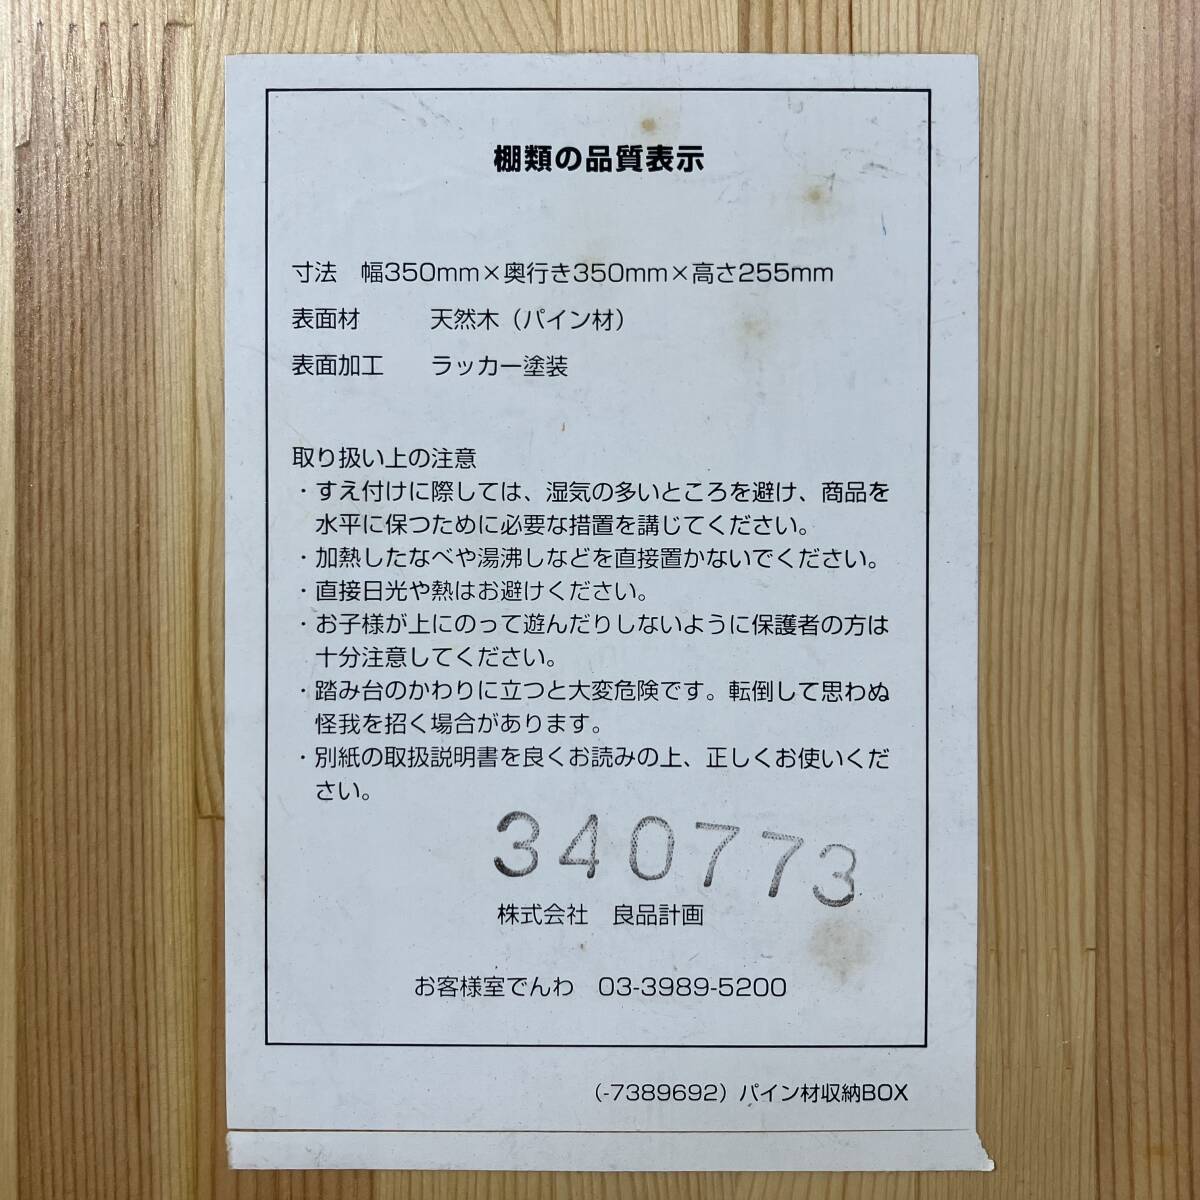 棚類の品質表示
寸法　幅350mm×奥行き350mm×高さ255mm
表面材　　　天然木（パイン材）
表面加工　　ラッカー塗装
取り扱い上の注意
・すえ付けに際しては、湿気の多いところを避け、商品を
水平に保つために必要な措置を講じてください。
・加熱したなべや湯沸しなどを直接置かないでください。
・直接日光や熱はお避けください。
・お子様が上にのって遊んだりしないように保護者の方は
十分注意してください。
・踏み台のかわりに立つと大変危険です。転倒して思わぬ
怪我を招く場合があります。
・別紙の取扱説明書を良くお読みの上、正しくお使いくだ
さい。
340773
株式会社　良品計画
お客様室でんわ　03-3989-5200
（-7389692）パイン材収納BOX